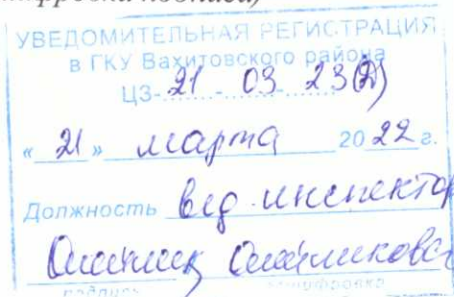 УВЕДОМИТЕЛЬНАЯ РЕГИСТРАЦИЯ
в ГКУ Вахитовского района
ЦЗ- 21 - 03 - 23(Д)
« 21 » марта 2022 г.
Должность вед. инспектор
подпись